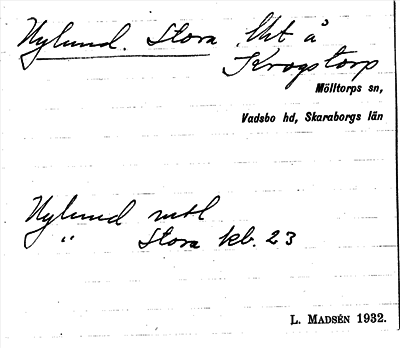 Nylund. Stora lht å
Krogstorp
Mölltorps sn,
Vadsbo hd, Skaraborgs län
Nylund mtl
" Stora kb. 23
L. MADSÉN 1932.